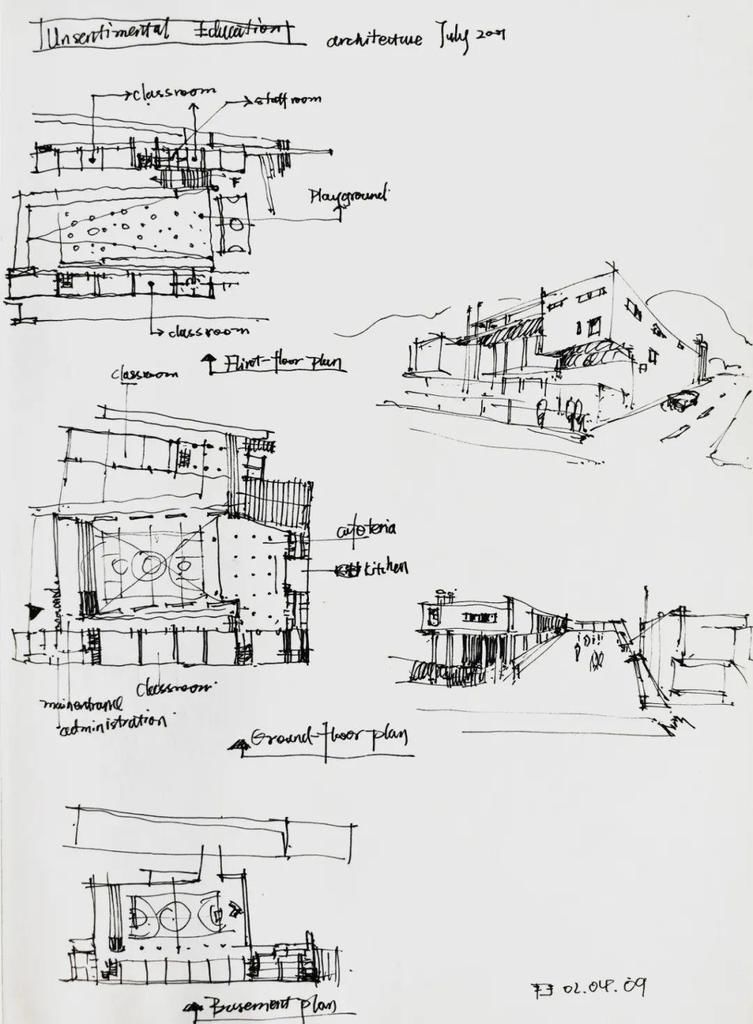 Unsentimental Education
architecture July 2001
classroom
staff room
Playground
classroom
First-floor plan
classroom
cafeteria
kitchen
classroom
main entrance
administration
Ground-floor plan
Basement plan
02.04.09